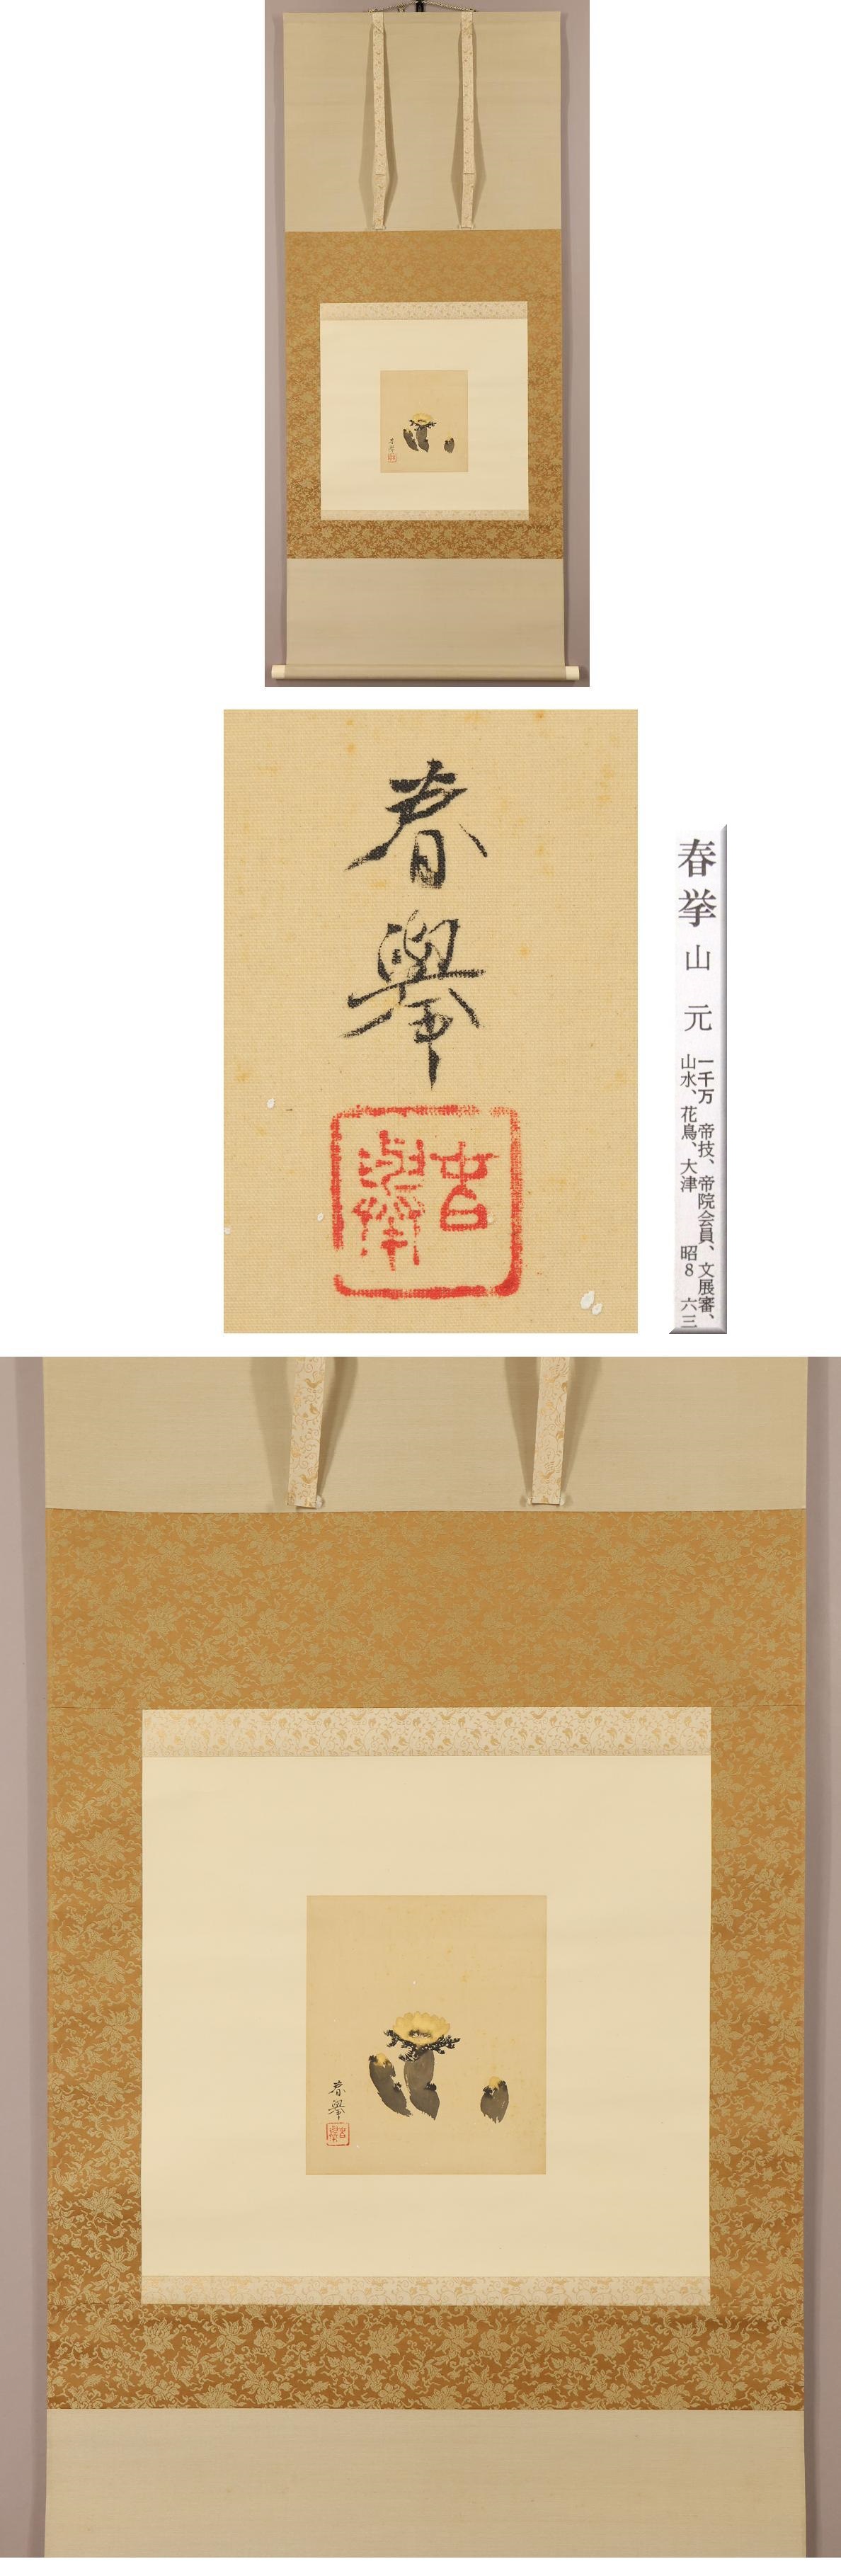 春
擧
春擧
春挙
山元
一千万 帝技、帝院会員、文展審、
山水、花鳥、大津 昭8 六三
春擧